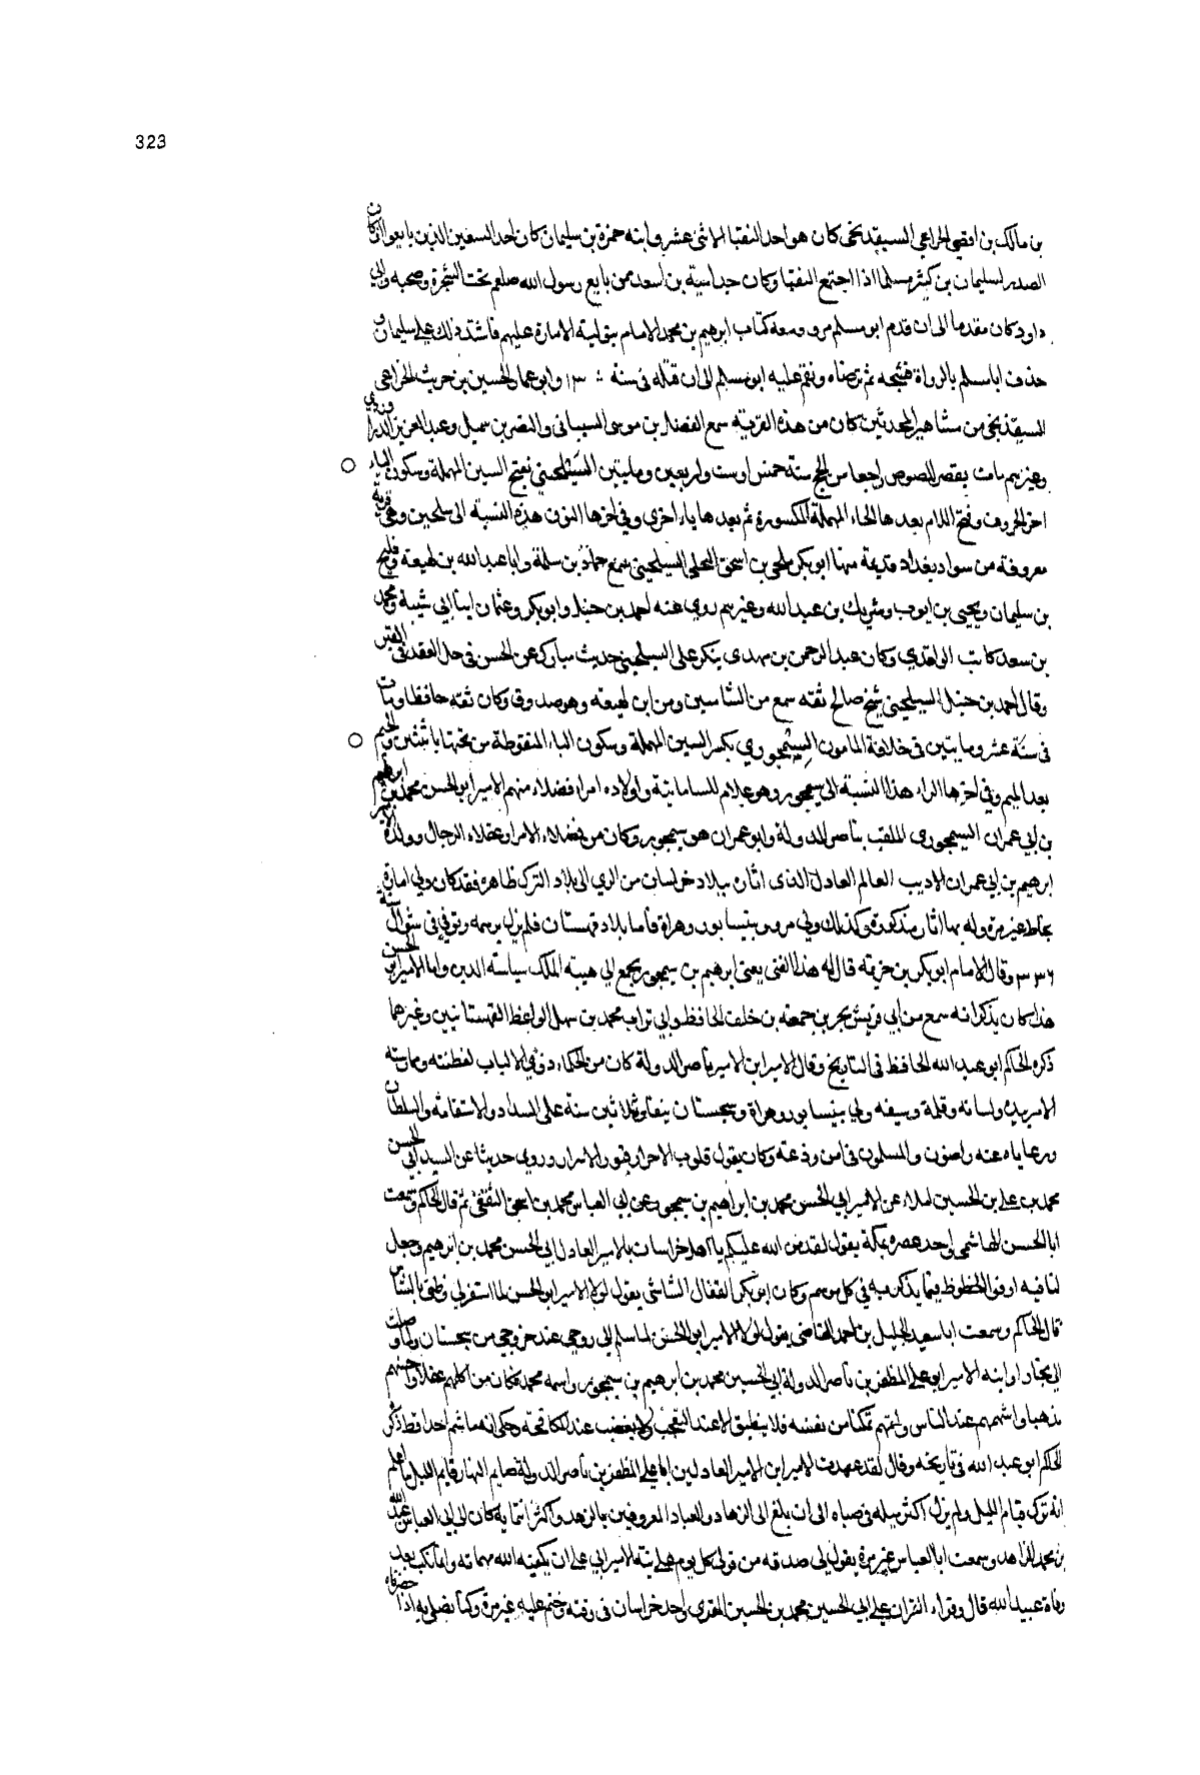 323
بن مالك بن افصى الخزاعي السيقذنجى كان هو احد النقبا الاثنى عشر وابنه حمزة بن سليمان كان احد السبعين الذين بايعوا وكان
الصدر لسليمان بن كثير مسلما اذا اجتمع النقبا وكان جد اسيد بن اسعد ممن بايع رسول الله صلعم تحت الشجرة وصحبه والى
داود كان مقدما الى ان قدم ابو مسلم مرو ومعه كتاب ابرهيم بن محمد الامام بتولية الامارة عليهم فاشتد ذلك على سليمان و
حذف ابا مسلم بالدواة فشجه ثم ترضاه ونقم عليه ابو مسلم الى ان قتله فى سنة ١٣٠ وابو عمار الحسين بن حريث الخزاعي
السيقذنجى من مشاهير المحدثين كان من هذه القرية سمع الفضل بن موسى السينانى والنضر بن شميل وعبد العزيز الدراوردي
وغيرهم مات بقصر اللصوص راجعا من الحج سنة خمس او ست واربعين ومايتين السيلحيني بفتح السين المهملة وسكون الياء
اخر الحروف وفتح اللام بعدها الحاء المهملة المكسورة ثم بعدها ياء اخرى وفى اخرها النون هذه النسبة الى سيلحين وهى قرية
معروفة من سواد بغداد قديمة منها ابو بكر يحيى بن اسحق البجلي السيلحينى سمع حماد بن سلمة وابا عبد الله بن لهيعة وفليح
بن سليمان ويحيى بن ايوب وشريك بن عبد الله وغيرهم روى عنه احمد بن حنبل وابو بكر وعثمان ابنا ابي شيبة ومحمد
بن سعد كاتب الواقدي وكان عبد الرحمن بن مهدى ينكر على السيلحينى حديث مبارك عن الحسن فى حل العقد فى القبر
وقال احمد بن حنبل السيلحينى شيخ صالح ثقة سمع من الشاميين ومن ابن لهيعة وهو صدوق وكان ثقة حافظا ومات
فى سنة عشر ومايتين فى خلافة المامون السيمجوري بكسر السين المهملة وسكون الياء المنقوطة من تحتها باثنتين والجيم
بعد الميم وفى اخرها الراء هذه النسبة الى سيمجور وهو غلام للسامانية واولاده امراء فضلاء منهم الامير ابو الحسن محمد بن ابرهيم
بن ابي عمران السيمجورى الملقب بناصر الدولة وابو عمران هو سيمجور وكان من فضلاء الامراء وعقلاء الرجال وولده الامير
ابرهيم بن ابي عمران الاديب العالم العادل الذى اثاره ببلاد خراسان من الري الى بلاد الترك ظاهرة فقد كان ولي امارة
بخارا غير مرة وله بها اثار مذكورة وكذلك ولي مرو ونيسابور وهراة فاما بلاد قهستان فلم يزل برسمه وتوفى فى شوال سنة
٣٣٦ وقال الامام ابو بكر بن خزيمة قال له هذا الفتى يعنى ابرهيم بن سيمجور يجمع الى هيبة الملك سياسة الدين واما الامير ابو الحسن
هذا كان يذكر انه سمع من ابي قريش محمد بن جمعة بن خلف الحافظ وابي تراب محمد بن سهل الواعظ القهستانيين وغيرهما
ذكره الحاكم ابو عبد الله الحافظ فى التاريخ وقال الامير ابن الامير ناصر الدولة كان من الحكماء ذوي الالباب لفطنته وممارسته
الامور بيده ولسانه وقلمه وسيفه ولي بنيسابور وهراة وسجستان نيفا وثلاثين سنة على السداد والاستقامة والسلطان
ورعاياه عنه راضون والمسلمون فى امن ودعة وكان يقول قلوب الاحرار قبور الاسرار وروى حديثا عن السيد ابي الحسن
محمد بن على بن الحسين املاء عن الامير ابي الحسن محمد بن ابراهيم بن سيمجور عن ابي العباس محمد بن اسحق الثقفى ثم قال الحاكم وسمعت
ابا الحسن الهاشمى اوحد عصره بمكة يقول لقد من الله عليكم يا اهل خراسان بالامير العادل ابي الحسن محمد بن ابرهيم وجعل
لنا فيه اوفر الحظوظ فيما يذكر به فى كل موسم وكان ابو بكر القفال الشاشى يقول لولا الامير ابو الحسن لما استقر لي وطنى بالشاش
قال الحاكم وسمعت ابا سعيد الخليل بن احمد القاضى يقول لولا الامير ابو الحسن لما سلم لي روحى عند خروجى من سجستان ولما وصلت
الى بخارا وابنه الامير ابو على المظفر بن ناصر الدولة ابي الحسين محمد بن ابرهيم بن سيمجور واسمه محمد فكان من اكملهم عقلا واحسنهم
مذهبا واشهمهم عند الناس واتمهم تمكنا من نفسه فلا ينطق الا عند التعجب ولا يغضب عند المكافحة وحكى انه ما شتم احدا قط ذكر
الحاكم ابو عبد الله فى تاريخه وقال لقد عهدت الامير ابن الامير العادلين ابا على المظفر بن ناصر الدولة صايم النهار قايم الليل ما علم
انه ترك قيام الليل ولم يزل اكثر ميله فى صباه الى ان بلغ الى الزهاد والعباد المعروفين بالزهد واكثر انتمايه كان الى ابي العباس عبد الله
بن محمد الزاهد وسمعت ابا العباس غير مرة يقول لي صدقة من قوتى كل يوم على نية الامير ابي على ان يكفيه الله مهماته وامانكت بعد
وفاة عبيد الله قال وقراء القران على ابي الحسين محمد بن الحسين المقرى واحد خراسان فى وقته وختم عليه غير مرة وكنا نصلى به اذا حضرناه